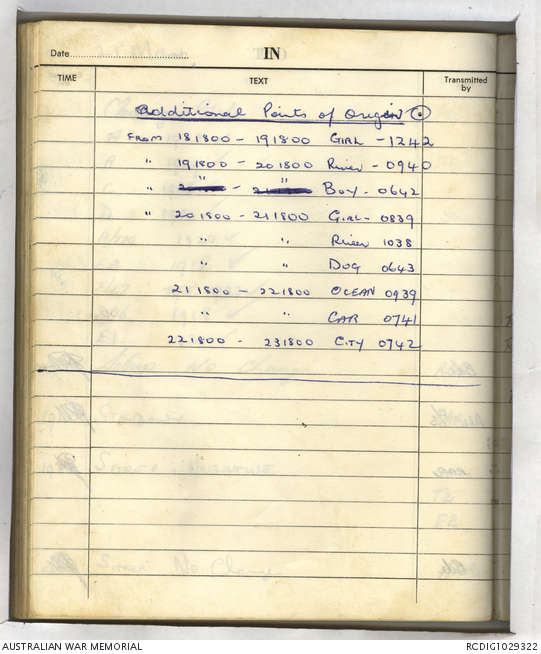 Date IN
TIME TEXT Transmitted by
Additional Points of Origin
FROM 181800 - 191800 GIRL - 1242
" 191800 - 201800 River - 0940
" " - " BOY - 0642
" 201800 - 211800 GIRL - 0839
" " River 1038
" " DOG 0643
211800 - 221800 OCEAN 0939
" " CAR 0741
221800 - 231800 CITY 0742
AUSTRALIAN WAR MEMORIAL RCDIG1029322